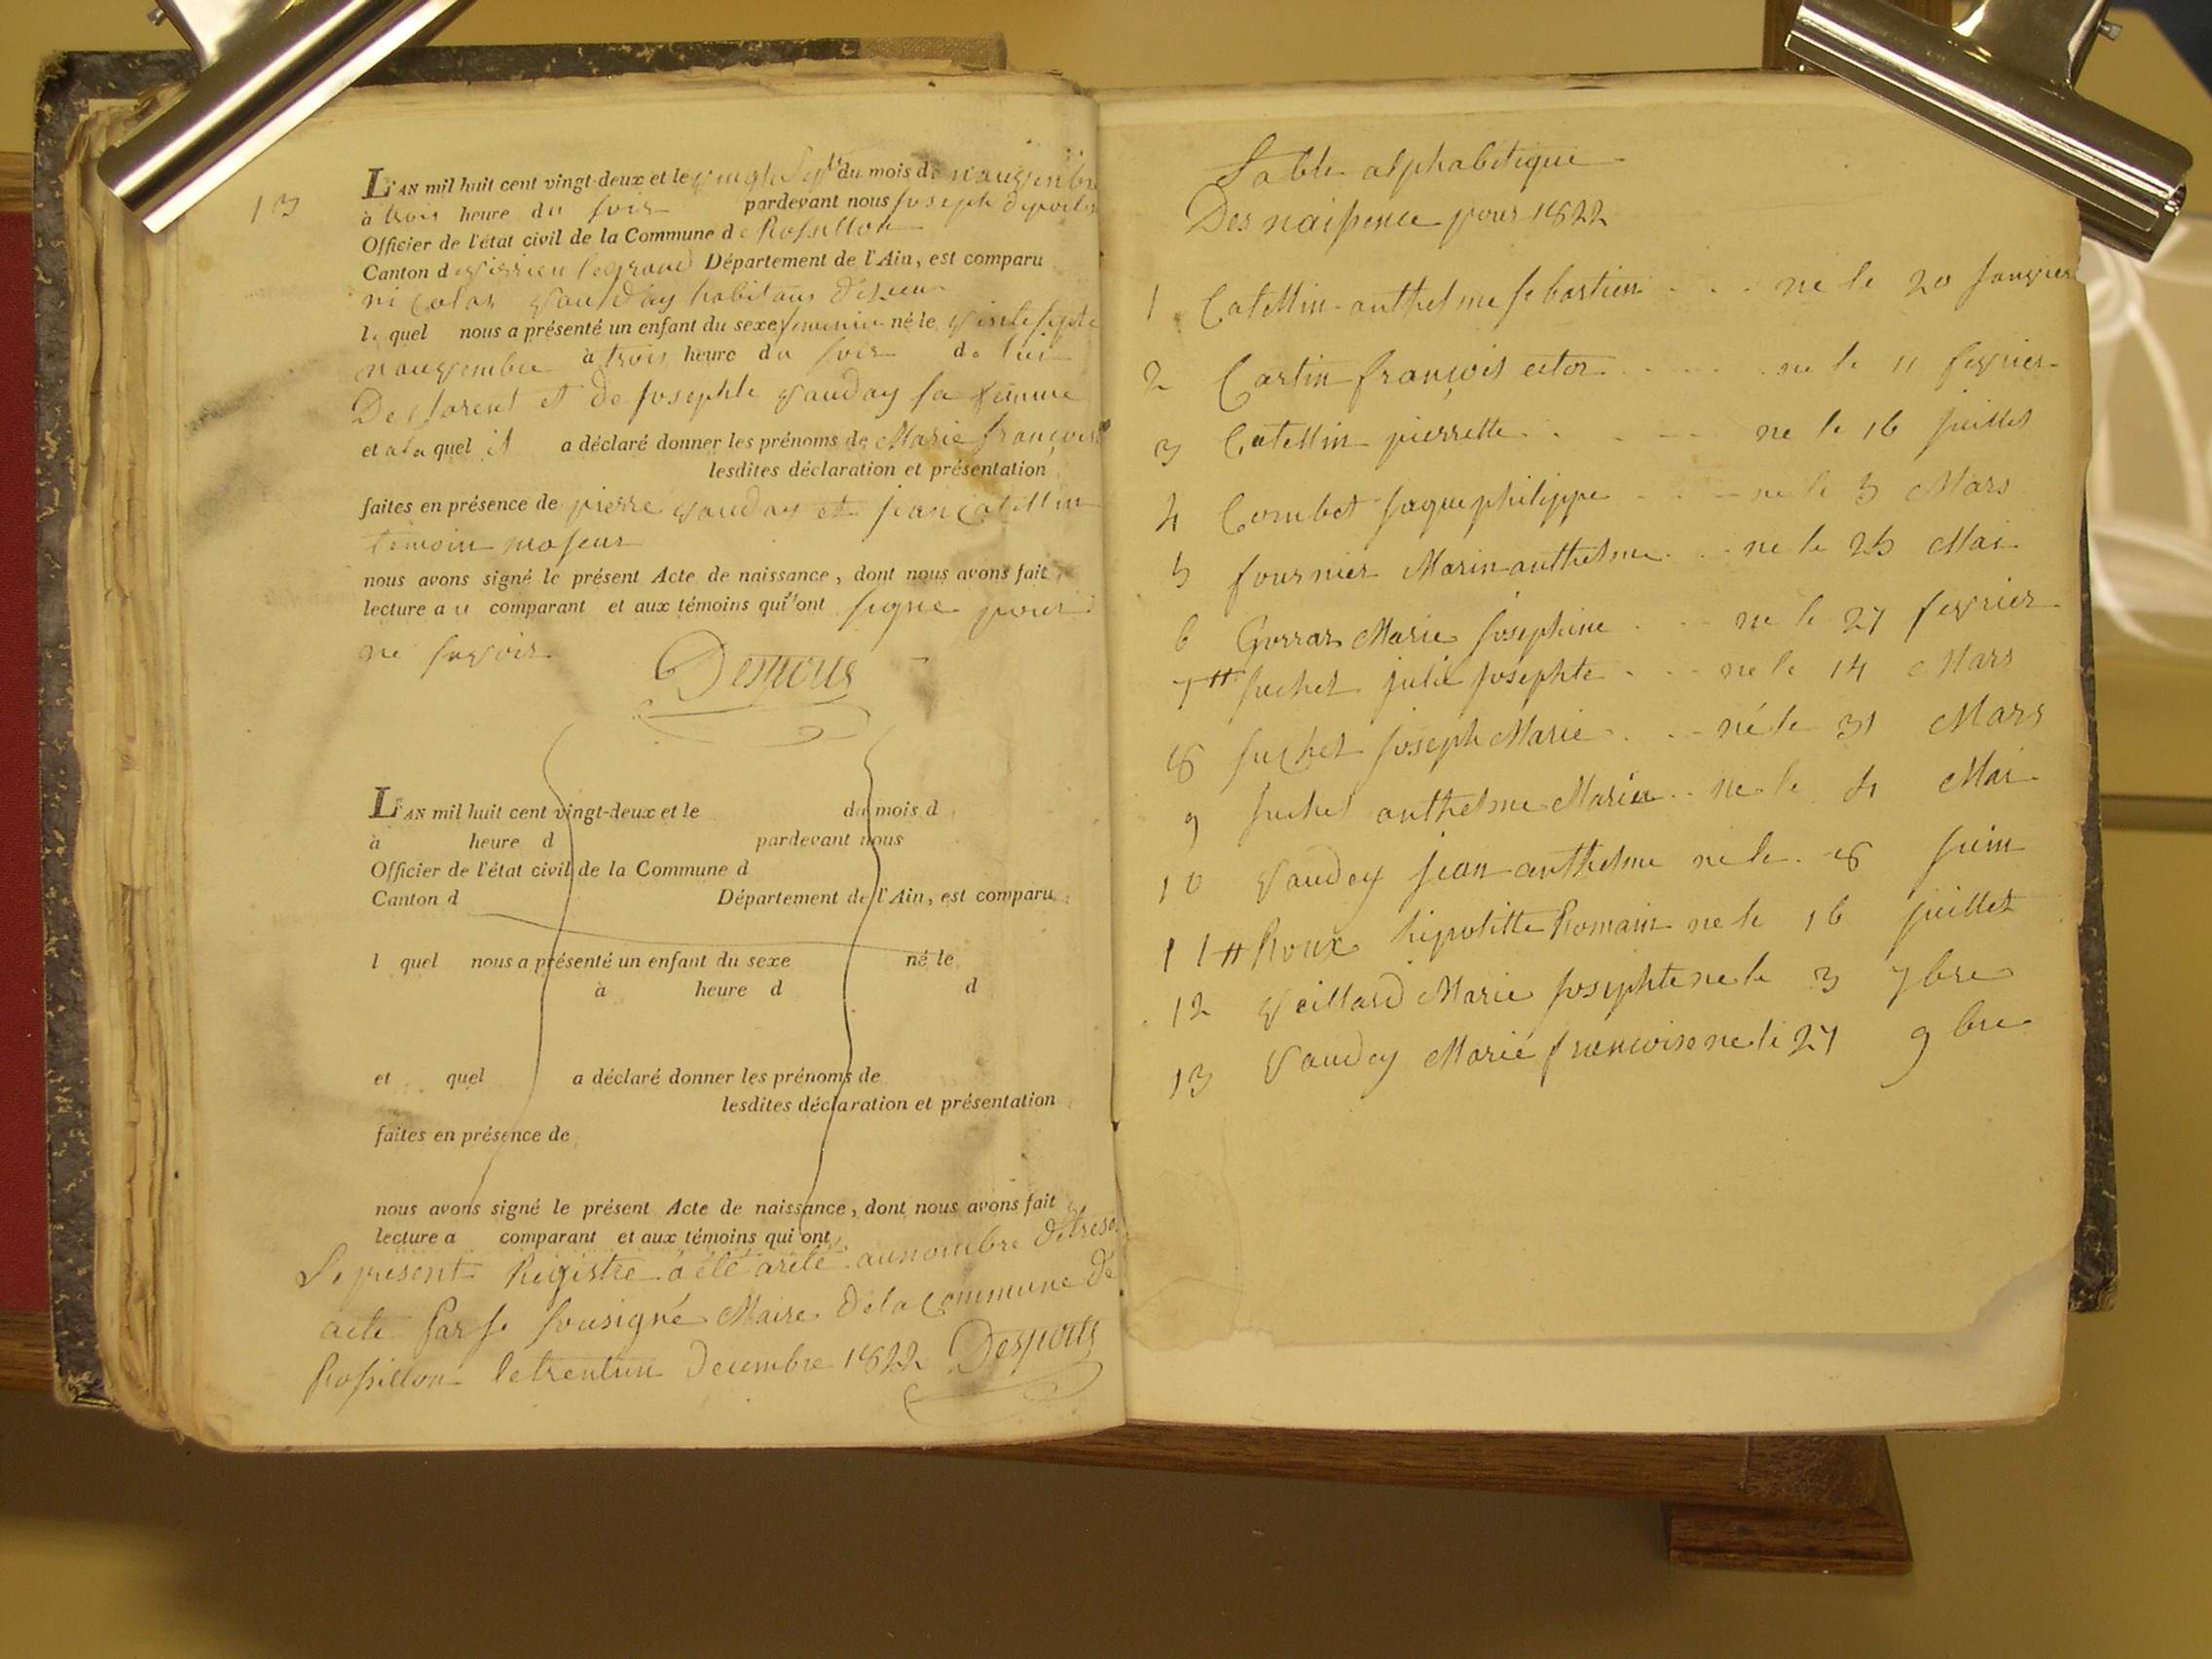 13
L'AN mil huit cent vingt-deux et le vingt Sept du mois de nauvembre
à trois heure du soir pardevant nous joseph
Officier de l'état civil de la Commune de Rossillon
Canton de virieu legrand Département de l'Ain, est comparu
nicolas vauday habitans
le quel nous a présenté un enfant du sexe femenin né le vinte septe
nauvembre à trois heure du soir de lui
Declarent et de josephte vauday sa femme
et a la quel il a déclaré donner les prénoms de Marie françoise
lesdites déclaration et présentation
faites en présence de pierre vauday et jean catellin
temoin majeur
nous avons signé le présent Acte de naissance, dont nous avons fait
lecture au comparant et aux témoins qui n'ont signe pour
ne savoir
L'AN mil huit cent vingt-deux et le du mois d
à heure d pardevant nous
Officier de l'état civil de la Commune d
Canton d Département de l'Ain, est comparu
l quel nous a présenté un enfant du sexe né le
à heure d d
et quel a déclaré donner les prénoms de
lesdites déclaration et présentation
faites en présence de
nous avons signé le présent Acte de naissance, dont nous avons fait
lecture a comparant et aux témoins qui ont
Le present Registre a été arété au nombre de
acte Par je sousigné Maire de la commune de
Rossillon le trentun decembre 1822
Table alphabetique
Des naissence pour 1822
1 Catellin anthelme sebastien ... ne le 20 janvier
2 Cartin françois ector ..... ne le 11 fevrier
3 Catellin pierrette .... ne le 16 juillet
4 Combet jaque philippe ... ne le 5 Mars
5 fournier Marin anthelme ... ne le 25 Mai
6 Gorrar Marie josephine ... ne le 27 fevrier
7 # juchet julie josephte ... ne le 14 Mars
8 juchet joseph Marie ... né le 31 Mars
9 juchet anthelme Marin .. ne le 4 Mai
10 Vauday jean anthelme ne le 8 juin
11 # Roux hipolitte Romain ne le 16 juillet
12 Veillard Marie josephte ne le 3 7bre
13 Vauday Marie francoise ne le 27 9bre